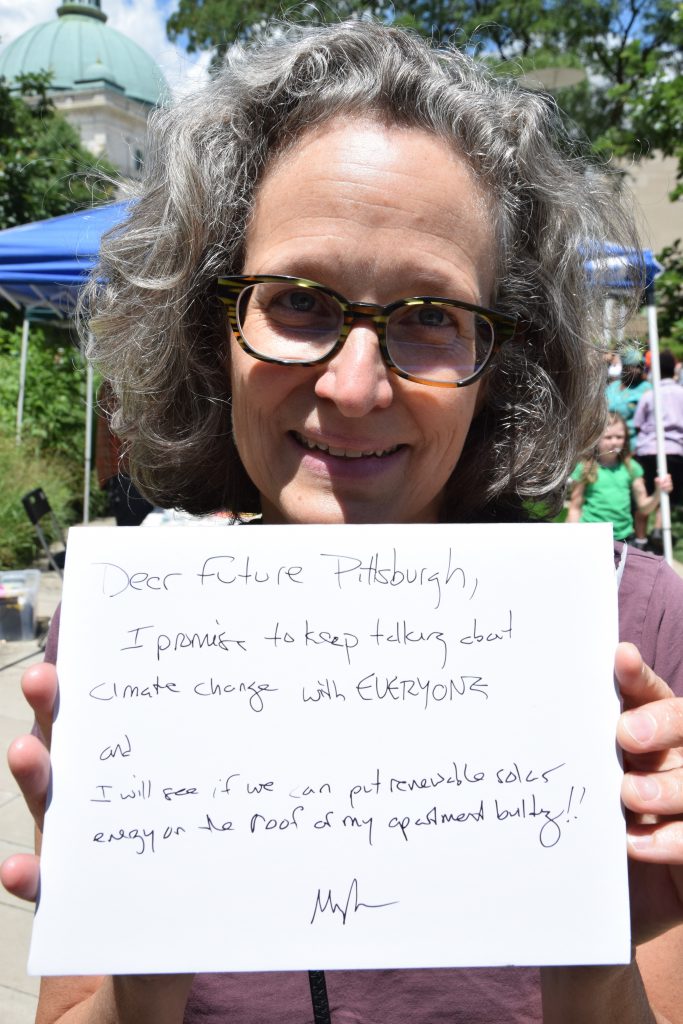 Dear Future Pittsburgh,
I promise to keep talking about
climate change with EVERYONE
and
I will see if we can put renewable solar
energy on the roof of my apartment building!!